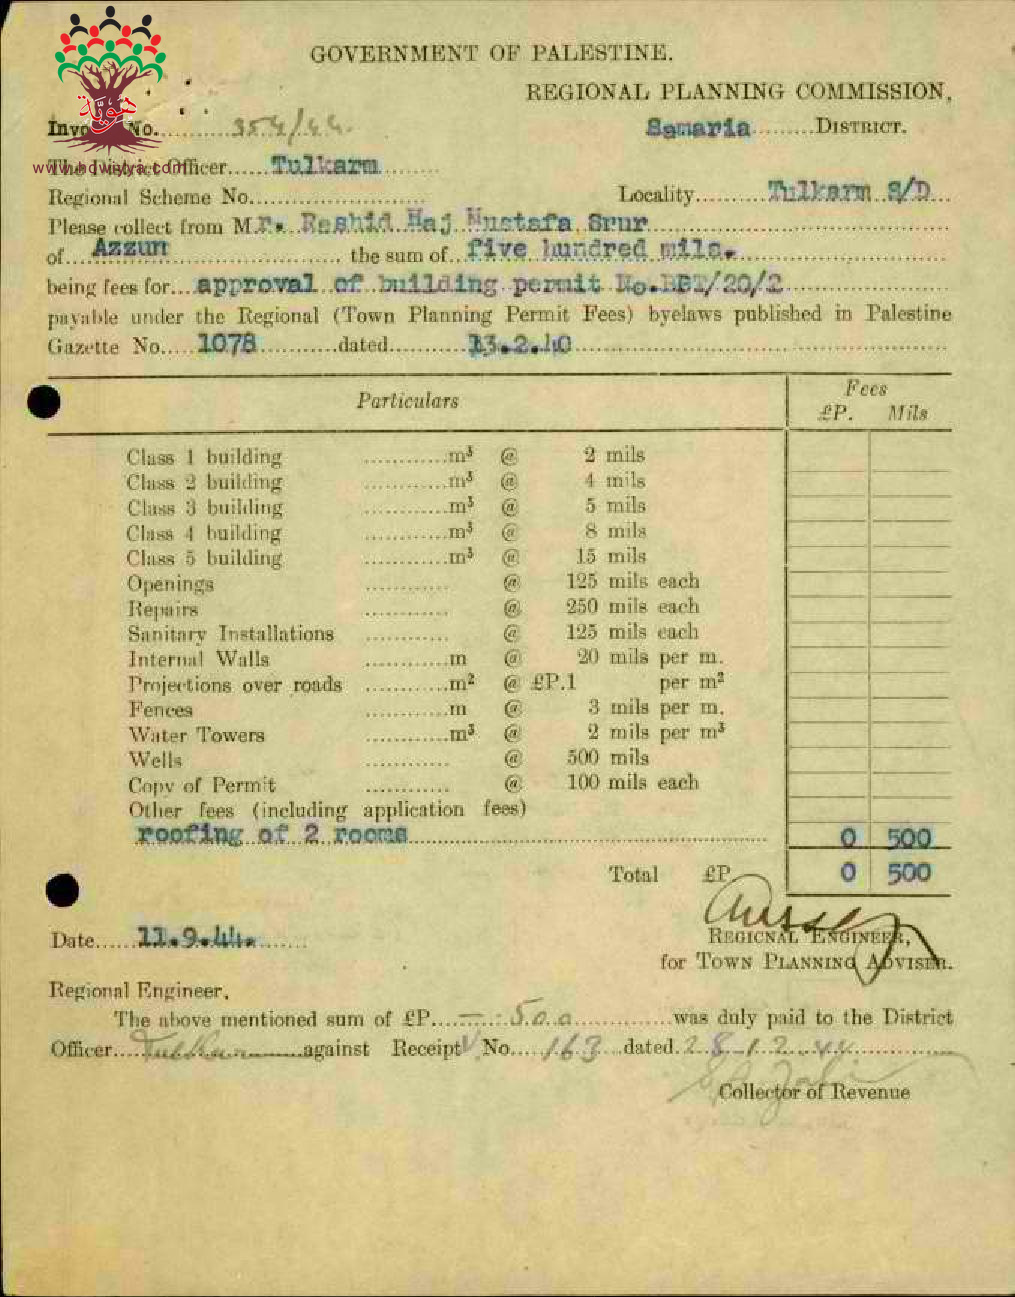 هوية
www.howiyya.com
GOVERNMENT OF PALESTINE.
REGIONAL PLANNING COMMISSION,
Invoice No............354/44.
Samaria.........DISTRICT.
The District Officer......Tulkarm.........
Regional Scheme No..........................
Locality..........Tulkarm S/D...
Please collect from Mr. Rashid Haj Mustafa Srur
of....Azzun................................, the sum of..five hundred mils.
being fees for...approval of building permit No.
payable under the Regional (Town Planning Permit Fees) byelaws published in Palestine
Gazette No.....1078............dated...........13.2.40
Particulars
Fees
£P. Mils
Class 1 building ............m³ @ 2 mils
Class 2 building ............m³ @ 4 mils
Class 3 building ............m³ @ 5 mils
Class 4 building ............m³ @ 8 mils
Class 5 building ............m³ @ 15 mils
Openings ............ @ 125 mils each
Repairs ............ @ 250 mils each
Sanitary Installations ............ @ 125 mils each
Internal Walls ............m @ 20 mils per m.
Projections over roads ............m² @ £P.1 per m²
Fences ............m @ 3 mils per m.
Water Towers ............m³ @ 2 mils per m³
Wells ............ @ 500 mils
Copy of Permit ............ @ 100 mils each
Other fees (including application fees)
roofing of 2 rooms 0 500
Total £P 0 500
Date......11.9.44.......
REGIONAL ENGINEER,
for TOWN PLANNING ADVISER.
Regional Engineer,
The above mentioned sum of £P....—.500..............was duly paid to the District
Officer....Tulkarm.........against Receipt No....163...dated.28.12.44
Collector of Revenue